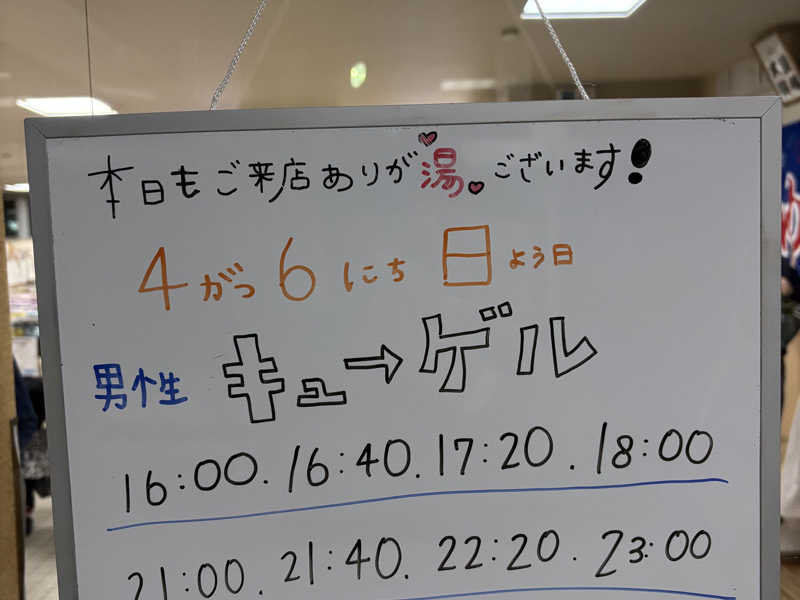 本日もご来店ありが湯ございます!
4がつ6にち日よう日
男性 キュー→ゲル
16:00. 16:40. 17:20. 18:00
21:00. 21:40. 22:20. 23:00